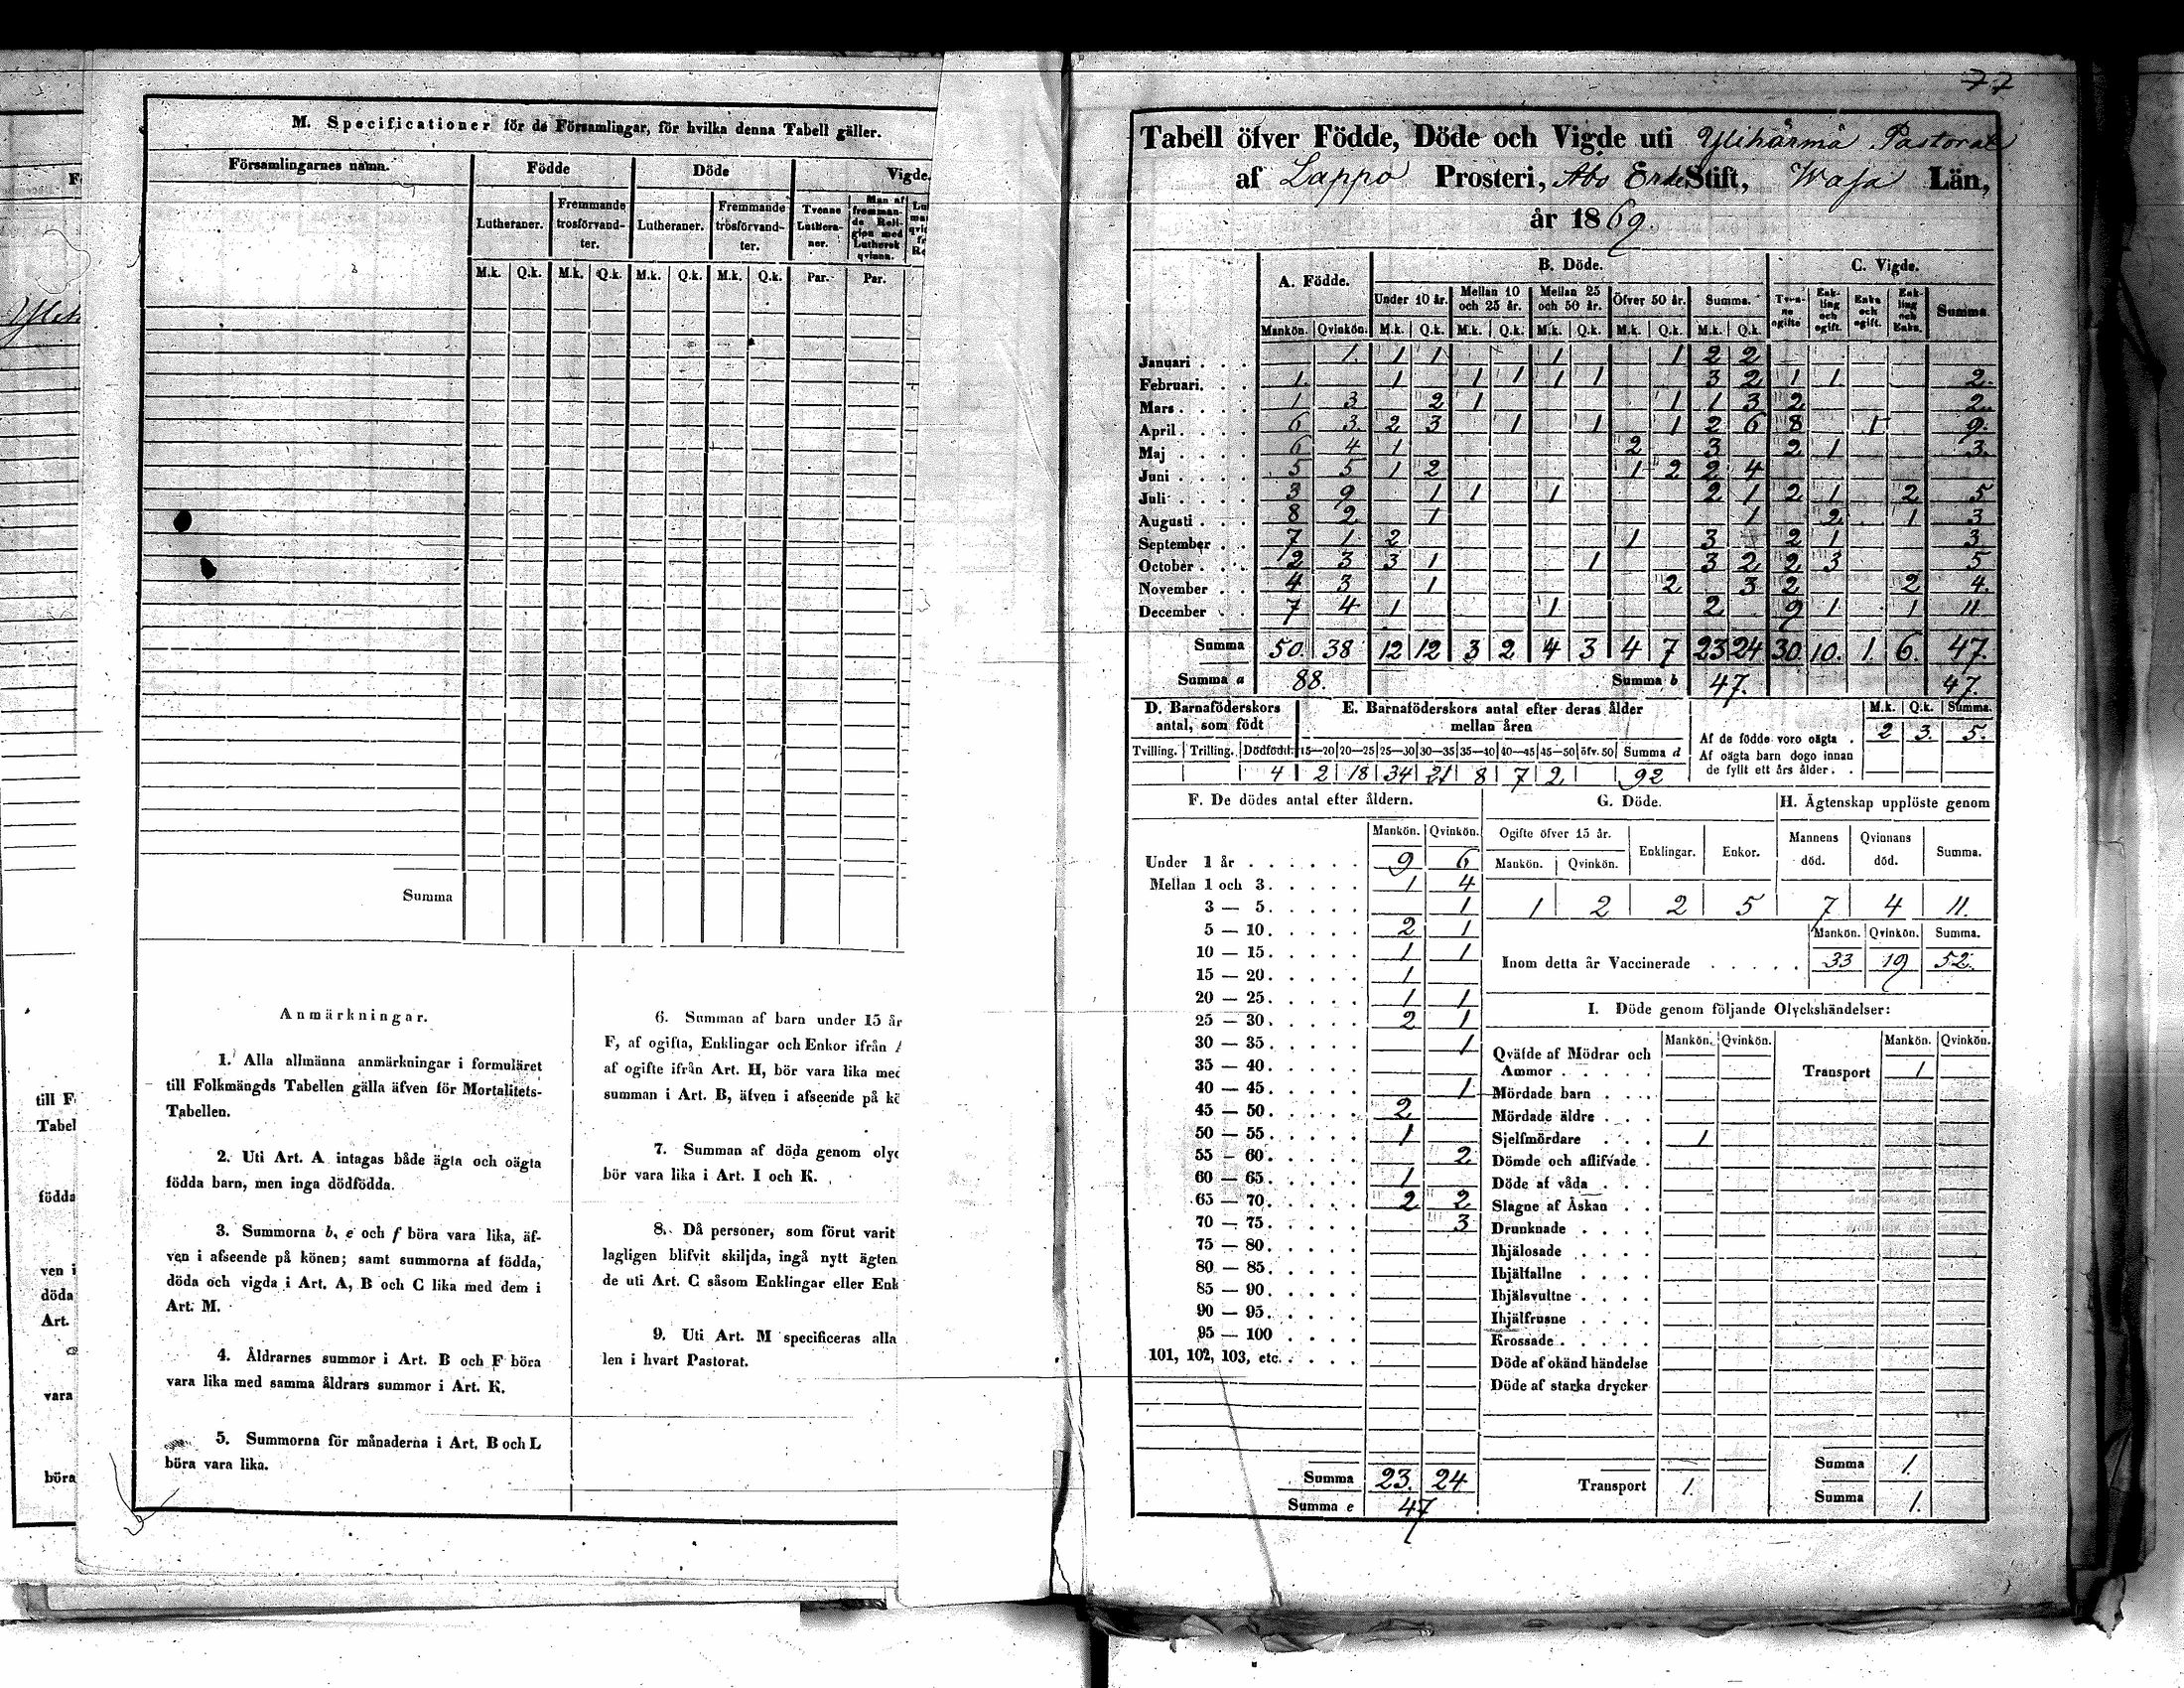 77
M. Specificationer för de Församlingar, för hvilka denna Tabell gäller.
Församlingarnes namn. Födde Döde Vigde.
Lutheraner. Fremmande trosförvandter. Lutheraner. Fremmande trosförvandter. Tvenne Lutheraner. Man af fremmande Religion med Luthersk qvinna.
M.k. Q.k. M.k. Q.k. M.k. Q.k. M.k. Q.k. Par. Par.
Summa
Anmärkningar.
1. Alla allmänna anmärkningar i formuläret
till Folkmängds Tabellen gälla äfven för Mortalitets-
Tabellen.
2. Uti Art. A intagas både ägta och oägta
födda barn, men inga dödfödda.
3. Summorna b, e och f böra vara lika, äf-
ven i afseende på könen; samt summorna af födda,
döda och vigda i Art. A, B och C lika med dem i
Art. M.
4. Åldrarnes summor i Art. B och F böra
vara lika med samma åldrars summor i Art. K.
5. Summorna för månaderna i Art. B och L
böra vara lika.
6. Summan af barn under 15 år
F, af ogifta, Enklingar och Enkor ifrån
af ogifte ifrån Art. H, bör vara lika med
summan i Art. B, äfven i afseende på kö
7. Summan af döda genom olyc
bör vara lika i Art. I och K.
8. Då personer, som förut varit
lagligen blifvit skiljda, ingå nytt ägten
de uti Art. C såsom Enklingar eller Enk
9. Uti Art. M specificeras alla
len i hvart Pastorat.
Tabell öfver Födde, Döde och Vigde uti Ylihärmä Pastorat
af Lappo Prosteri, Åbo Erke Stift, Wasa Län,
år 1869.
A. Födde. B. Döde. C. Vigde.
Under 10 år. Mellan 10 och 25 år. Mellan 25 och 50 år. Öfver 50 år. Summa. Tvenne ogifte Enkling och ogift. Enka och ogift. Enkling och Enka. Summa.
Mankön. Qvinkön. M.k. Q.k. M.k. Q.k. M.k. Q.k. M.k. Q.k. M.k. Q.k.
Januari . . . 1. 1 1 1 1 2 2
Februari. . . 1. 1 1 1 1 1 3 2 1 1 2.
Mars . . . . 1 3 2 1 1 1 3 2 2.
April. . . . 6 3. 2 3 1 1 1 2 6 8 1 9.
Maj . . . . 6 4 1 2 3 2 1 3.
Juni . . . . 5 5 1 2 1 2 2 4
Juli . . . . 3 9 1 1 1 2 1 2 1 2 5
Augusti . . . 8 2 1 1 2 1 3
September . . 7 1 2 1 3 2 1 3
October . . . 2 3 3 1 1 3 2 2 3 5
November . . 4 3 1 2 3 2 2 4.
December . . 7 4 1 1 2 9 1 1 11
Summa 50. 38 12 12 3 2 4 3 4 7 23 24 30 10. 1. 6. 47.
Summa a 88. Summa b 47. 47.
D. Barnaföderskors antal, som födt
E. Barnaföderskors antal efter deras ålder mellan åren
M.k. Q.k. Summa.
Tvilling. Trilling. Dödfödd. 15—20 20—25 25—30 30—35 35—40 40—45 45—50 öfv. 50 Summa d
4 2 18 34 21 8 7 2 92
Af de födde voro oägta . 2 3. 5.
Af oägta barn dogo innan
de fyllt ett års ålder. .
F. De dödes antal efter åldern.
Mankön. Qvinkön.
Under 1 år . . . . . . 9 6
Mellan 1 och 3. . . . . 1 4
3 — 5. . . . . 1
5 — 10. . . . . 2 1
10 — 15. . . . . 1 1
15 — 20. . . . . 1
20 — 25. . . . . 1 1
25 — 30. . . . . 2 1
30 — 35. . . . . 1
35 — 40. . . . .
40 — 45. . . . . 1
45 — 50. . . . . 2
50 — 55. . . . . 1
55 — 60. . . . . 2
60 — 65. . . . . 1
65 — 70. . . . . 2 2
70 — 75. . . . . 3
75 — 80. . . . .
80 — 85. . . . .
85 — 90. . . . .
90 — 95. . . . .
95 — 100 . . . .
101, 102, 103, etc. . . . .
Summa 23. 24
Summa e 47
G. Döde. H. Ägtenskap upplöste genom
Ogifte öfver 15 år. Enklingar. Enkor. Mannens död. Qvinnans död. Summa.
Mankön. Qvinkön.
1 2 2 5 7 4 11.
Mankön. Qvinkön. Summa.
Inom detta år Vaccinerade . . . . . 33 19 52.
I. Döde genom följande Olyckshändelser:
Mankön. Qvinkön. Mankön. Qvinkön.
Qväfde af Mödrar och
Ammor . . . . . Transport 1
Mördade barn . . .
Mördade äldre . . .
Sjelfmördare . . . 1
Dömde och aflifvade .
Döde af våda . . .
Slagne af Åskan . .
Drunknade . . . .
Ihjälosade . . . .
Ihjälfallne . . . .
Ihjälsvultne . . . .
Ihjälfrusne . . . .
Krossade . . . . .
Döde af okänd händelse
Döde af starka drycker
Summa 1.
Transport 1. Summa 1.